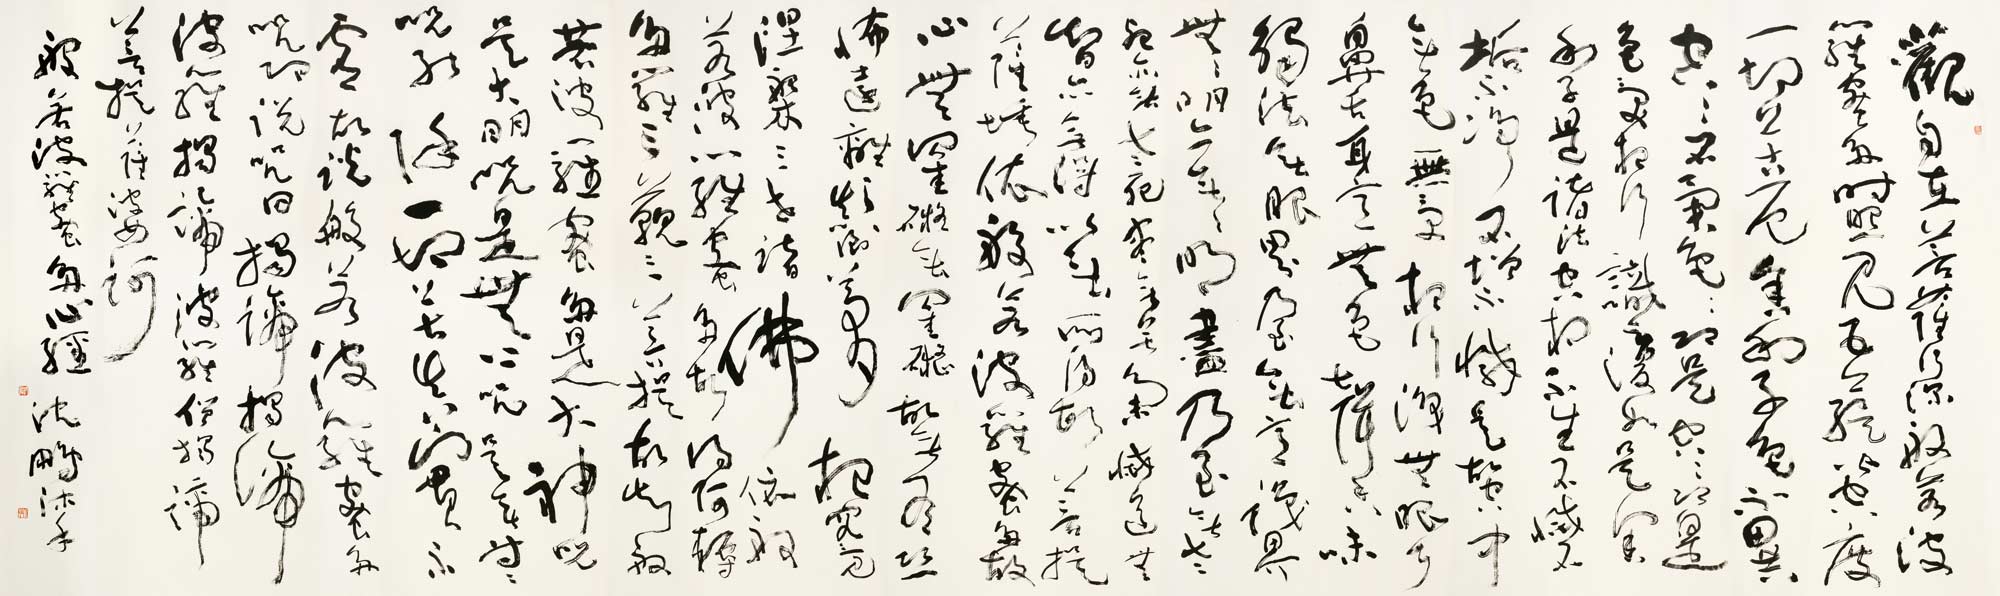 觀自在菩薩行深般若波
羅蜜多時照見五蘊皆空度
一切苦厄舍利子色不異
空空不異色色即是空空即是
色受想行識亦復如是舍
利子是諸法空相不生不滅不
垢不淨不增不減是故空中
無色無受想行識無眼耳
鼻舌身意無色聲香味
觸法無眼界乃至無意識界
無無明亦無無明盡乃至無老
死亦無老死盡無苦集滅道無
智亦無得以無所得故菩提
薩埵依般若波羅蜜多故
心無罣礙無罣礙故無有恐
怖遠離顛倒夢想究竟
涅槃三世諸佛依般
若波羅蜜多故得阿耨
多羅三藐三菩提故知般
若波羅蜜多是大神咒
是大明咒是無上咒是無等等
咒能除一切苦真實不
虛故說般若波羅蜜多
咒即說咒曰揭諦揭諦
波羅揭諦波羅僧揭諦
菩提薩婆訶
般若波羅蜜多心經 沈鵬沐手